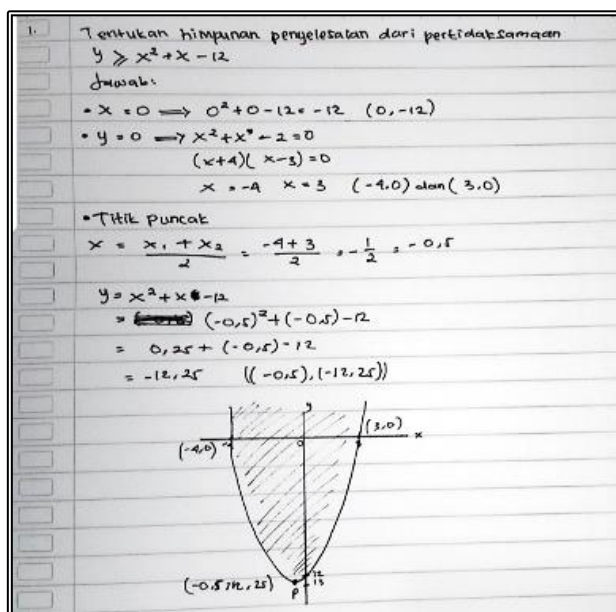 1. Tentukan himpunan penyelesaian dari pertidaksamaan
y ≥ x² + x - 12
Jawab:
• x = 0 ⟹ 0² + 0 - 12 = -12 (0, -12)
• y = 0 ⟹ x² + x - 2 = 0
(x+4)(x-3) = 0
x = -4 x = 3 (-4.0) dan (3,0)
• Titik puncak
x = x₁ + x₂ / 2 = -4 + 3 / 2 = - 1/2 = -0,5
y = x² + x - 12
= (-0,5)² + (-0,5) - 12
= 0,25 + (-0,5) - 12
= -12,25 ((-0,5), (-12,25))
y
(3,0)
x
(-4,0)
0
12
13
P